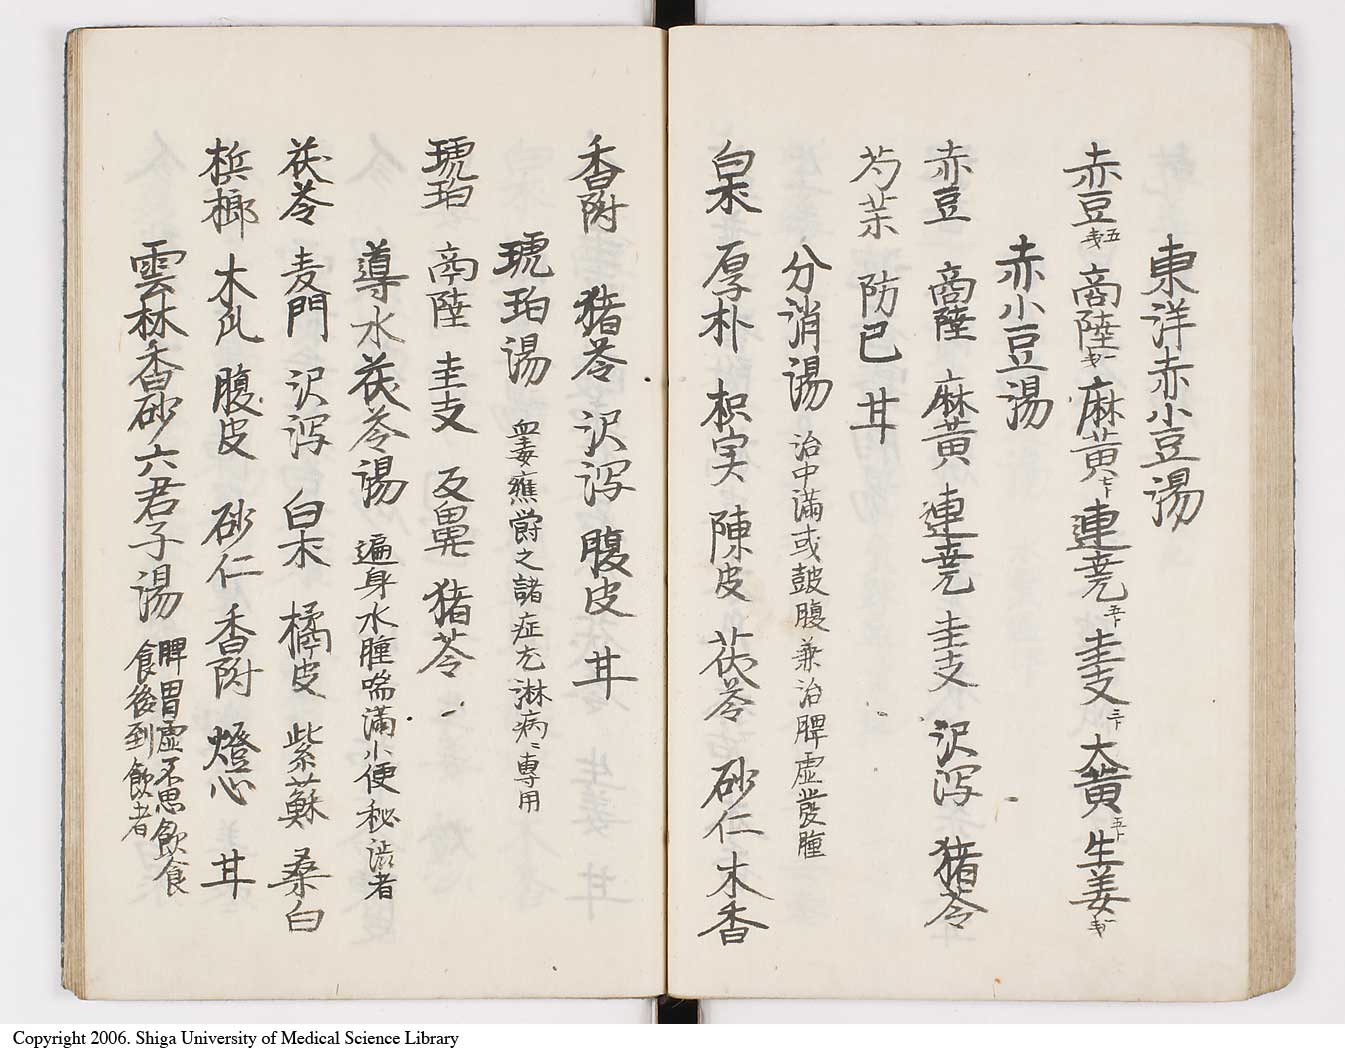 東洋赤小豆湯
赤豆五戔 商陸戔一 麻黄七卜 連尭五卜 圭支三卜 大黄五卜 生姜戔一
赤小豆湯
赤豆 商陸 麻黄 連尭 圭支 沢瀉 猪苓
芍茱 防已 甘
分消湯 治中滿或皷腹兼治脾虚發腫
白朮 厚朴 枳実 陳皮 茯苓 砂仁 木香
香附 猪苓 沢瀉 腹皮 甘
琥珀湯 血毒癰欝之諸症尤淋病ニ専用
琥珀 商陸 圭支 反鼻 猪苓
導水茯苓湯 遍身水腫喘滿小便秘澁者
茯苓 麦門 沢瀉 白朮 橘皮 紫蘇 桑白
梹榔 木瓜 腹皮 砂仁 香附 燈心 甘
雲林香砂六君子湯 脾胃虚不思飲食
食後到飽者
Copyright 2006. Shiga University of Medical Science Library